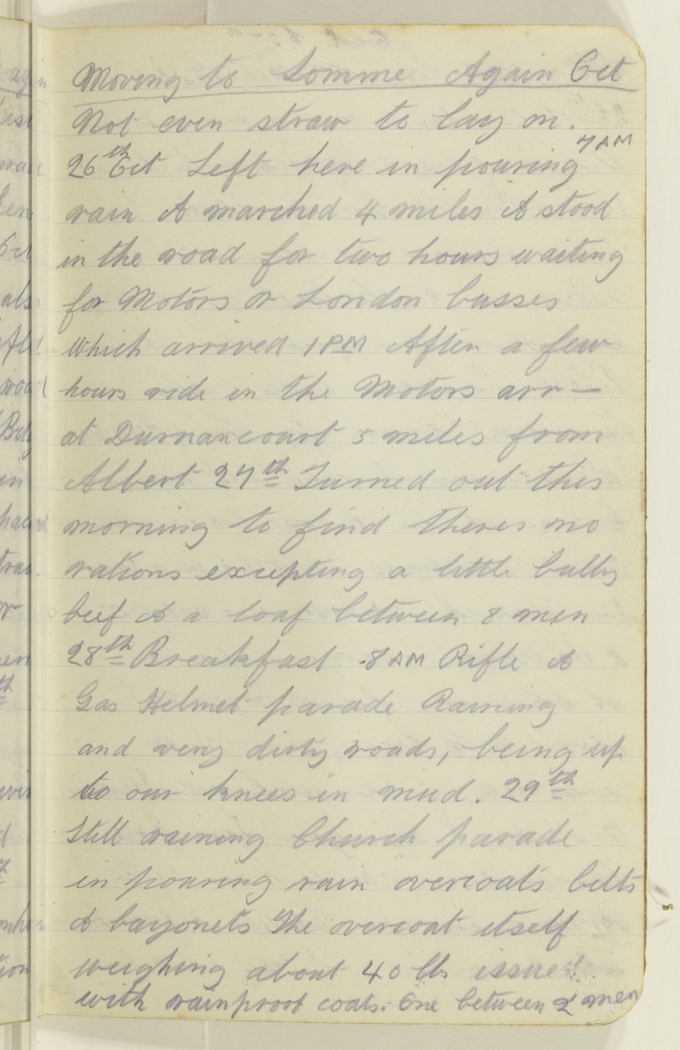 Moving to Somme Again Oct
Not even straw to lay on.
26th Oct Left here in pouring 7 AM
rain & marched 4 miles & stood
in the road for two hours waiting
for Motors or London busses
which arrived 1 PM After a few
hours ride in the Motors arr —
at Durnancourt 5 miles from
Albert 27th Turned out this
morning to find theres no
rations excepting a little bully
beef & a loaf between 8 men
28th Breakfast .8 AM Rifle &
Gas Helmet parade Raining
and very dirty roads, being up
to our knees in mud. 29th
Still raining Church parade
in pouring rain overcoats belts
& bayonets The overcoat itself
weighing about 40 lbs issued
with rainproof coats. One between 2 men